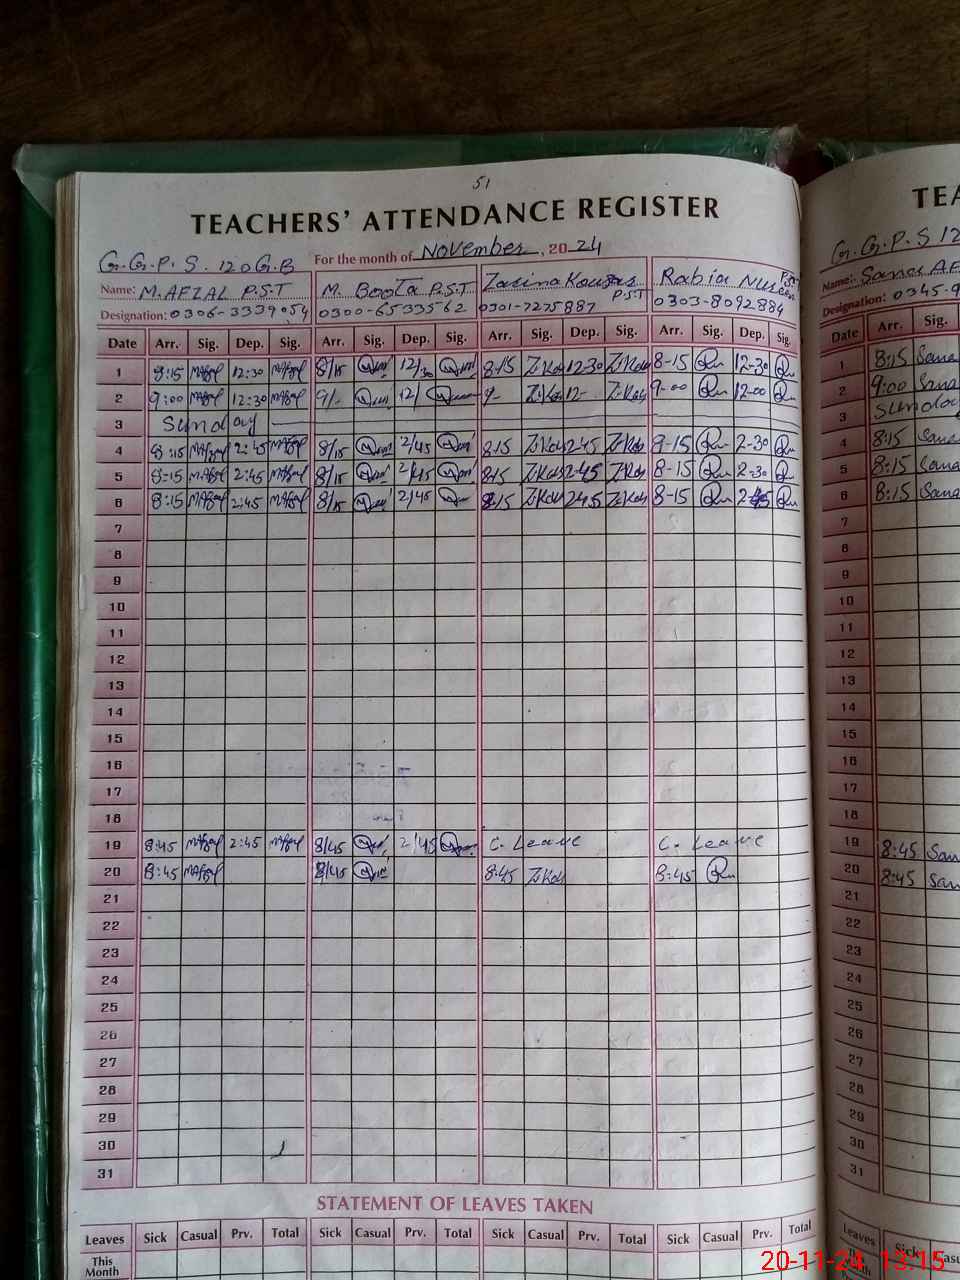 51
TEACHERS' ATTENDANCE REGISTER TEA
G.G.P.S. 120 G.B For the month of November, 20 24 G.G.P.S 12
Name: M.AFZAL P.S.T M. Boota P.S.T Zarina Kousar P.S.T Rabia P.S.T Name: Sana AF
Designation: 0306-3339054 0300-6533562 0301-7275887 0303-8092884 Designation: 0345-9
Date Arr. Sig. Dep. Sig. Arr. Sig. Dep. Sig. Arr. Sig. Dep. Sig. Arr. Sig. Dep. Sig. Date Arr. Sig.
1 8:15 MAfzal 12:30 MAfzal 8/15 12/30 8-15 Z.Kou 12-30 Z.Kou 8-15 12-30 1 8:15 Sana
2 9:00 MAfzal 12:30 MAfzal 9/- 12/ 9- Z.Kou 12- Z.Kou 9-00 12-00 2 9:00 Sana
3 Sunday 3 Sunday
4 8:15 MAfzal 2:45 MAfzal 8/15 2/45 8:15 Z.Kou 2:45 Z.Kou 8-15 2-30 4 8:15 Sana
5 8:15 MAfzal 2:45 MAfzal 8/15 2/45 8:15 Z.Kou 2:45 Z.Kou 8-15 2-30 5 8:15 Sana
6 8:15 MAfzal 2:45 MAfzal 8/15 2/45 8:15 Z.Kou 2:45 Z.Kou 8-15 6 8:15 Sana
7 7
8 8
9 9
10 10
11 11
12 12
13 13
14 14
15 15
16 16
17 17
18 18
19 8:45 MAfzal 2:45 MAfzal 8/45 2/45 C. Leave C. Leave 19 8:45 San
20 8:45 MAfzal 8/45 8:45 Z.Kou 8:45 20 8:45 San
21 21
22 22
23 23
24 24
25 25
26 26
27 27
28 28
29 29
30 30
31 31
STATEMENT OF LEAVES TAKEN
Leaves Sick Casual Prv. Total Sick Casual Prv. Total Sick Casual Prv. Total Sick Casual Prv. Total Leaves Sick Cas
This Month
20-11-24 13:15